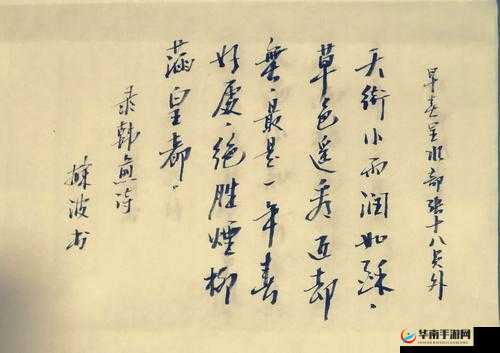 早春呈水部張十八員外
天街小雨润如酥、
草色遥看近却
無、最是一年春
好處、絕勝煙柳
滿皇都。
录韓愈诗
波书
华南手游网